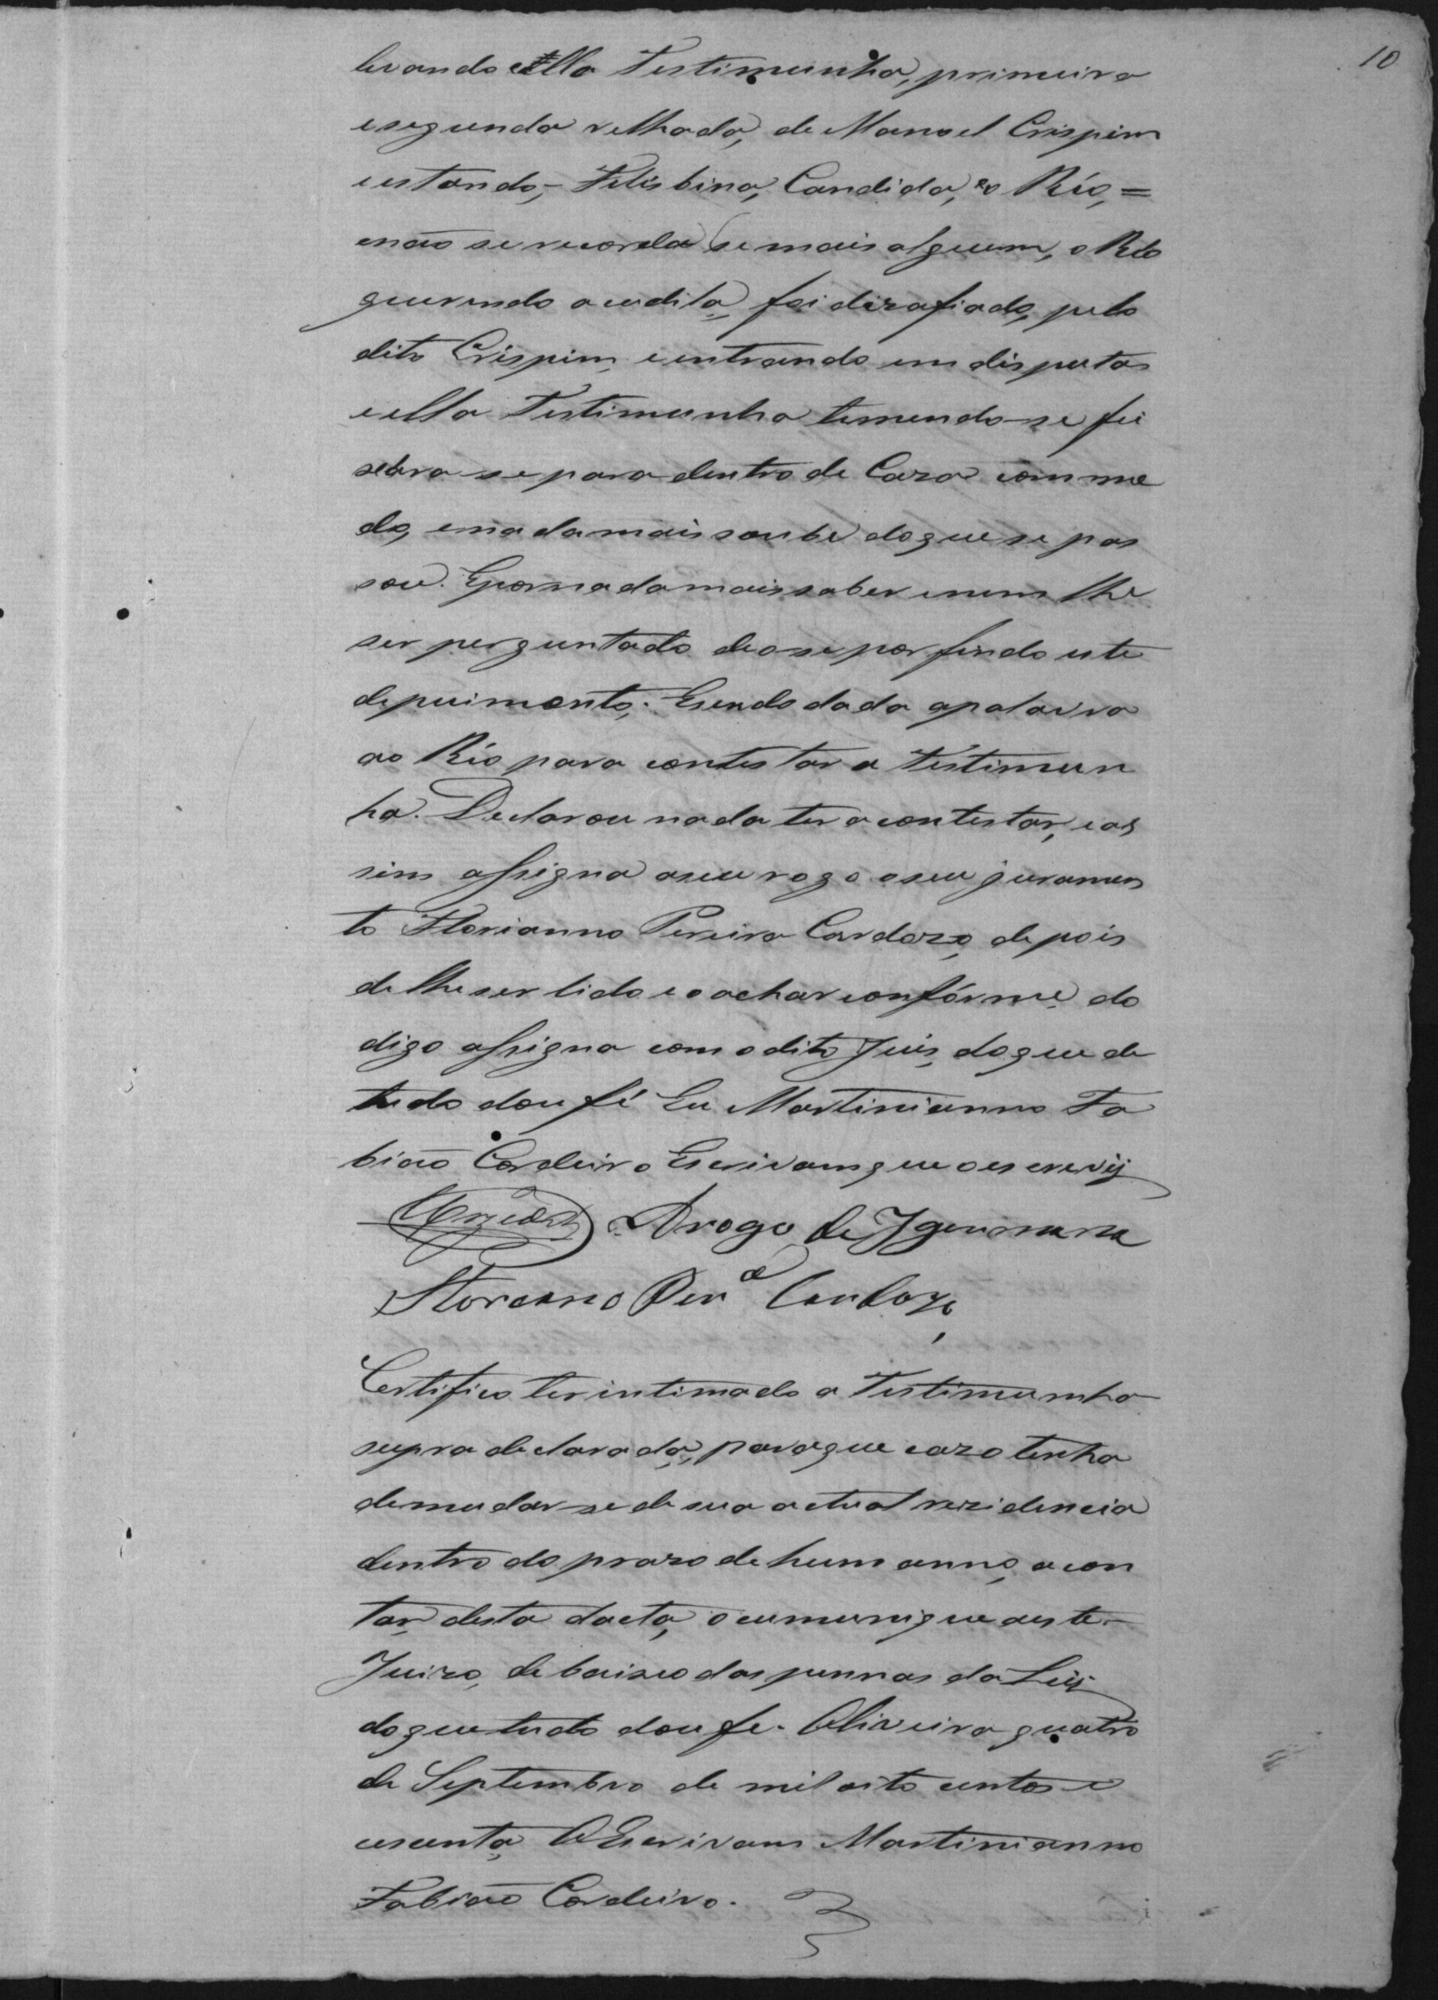 10
levando ella Testimunha, primeira
esegunda relhada, de Manoel Crispim
estando,- Felisbina, Candida, eo Réo, =
enão se recorda se mais alguem, o Réo
querendo acudila, foi dizafiado, pelo
dito Crispim, eentrando em disputas
eella Testimunha temendo-se fei
xara-se para dentro de Caza com me
do, enadamais soube doque se pas
sou. Epor nada mais saber enem lhe
ser perguntado deo-se por findo este
depuimento,. Esendo dada apalavra
ao Réo para contestar a Testimun
ha. Declarou nada ter acontestar, eas
sim assigna aseu rogo oseu juramen
to Florianno Pereira Cardozo, depois
de lhe ser lido eo achar confórme, do
digo assigna com odito Juis, doque de
tudo dou fé Eu Martinianno Fa
bião Cordeiro Escrivam que oescrevij
Drogo de
Floreano Per.ª Cardozo,
Certifico ter intimado a Testimunha
supra declarada, paraque cazo tenha
demudar-se de sua actual rezidencia
dentro do prazo de hum anno, acon
tar, desta dacta, ocumunique aeste-
Juizo, debaixo das pennas da Leij
doque tudo dou fe. Oliveira quatro
de Septembro de mil oito centos e
cecenta, OEscrivam Martinianno
Fabião Cordeiro.